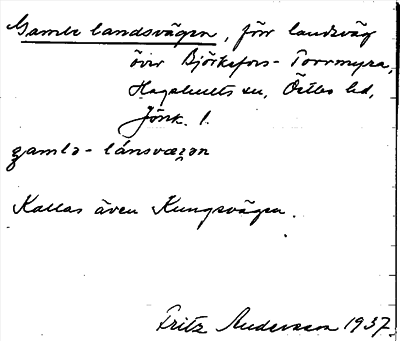 Gamle landsvägen, förr landsväg
över Björkefors - Torrmyra,
Hagshults sn, Östbo hd,
Jönk. l.
gamlə - lánsvægən
Kallas även Kungsvägen.
Fritz Andersson 1937.